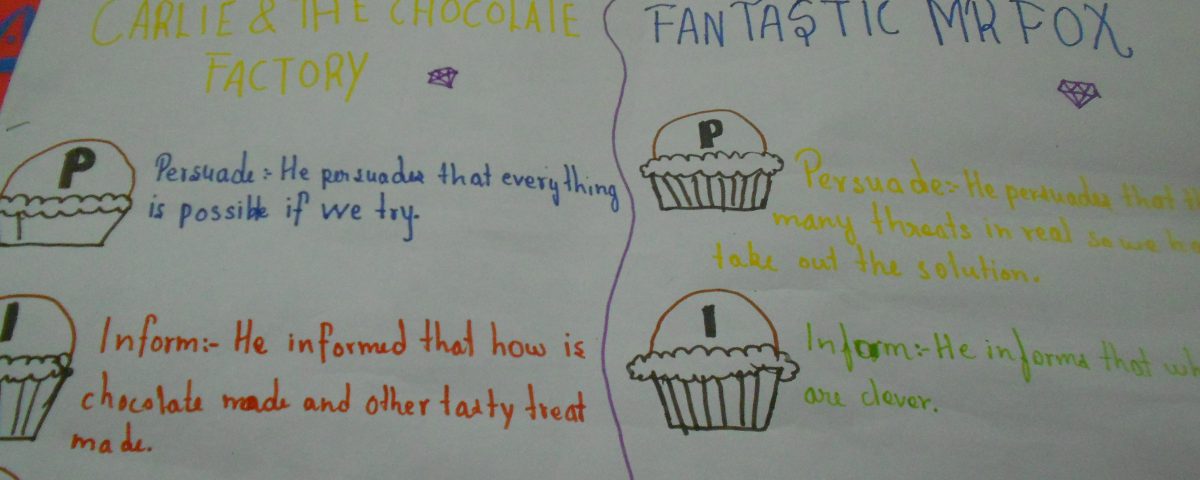 CARLIE & THE CHOCOLATE
FACTORY
P
Persuade:- He persuades that everything
is possible if we try.
I
Inform:- He informed that how is
chocolate made and other tasty treat
made.
FANTASTIC MR FOX
P
Persuade:- He persuades that
many threats in real so we
take out the solution.
I
Inform:- He informs that
are clever.